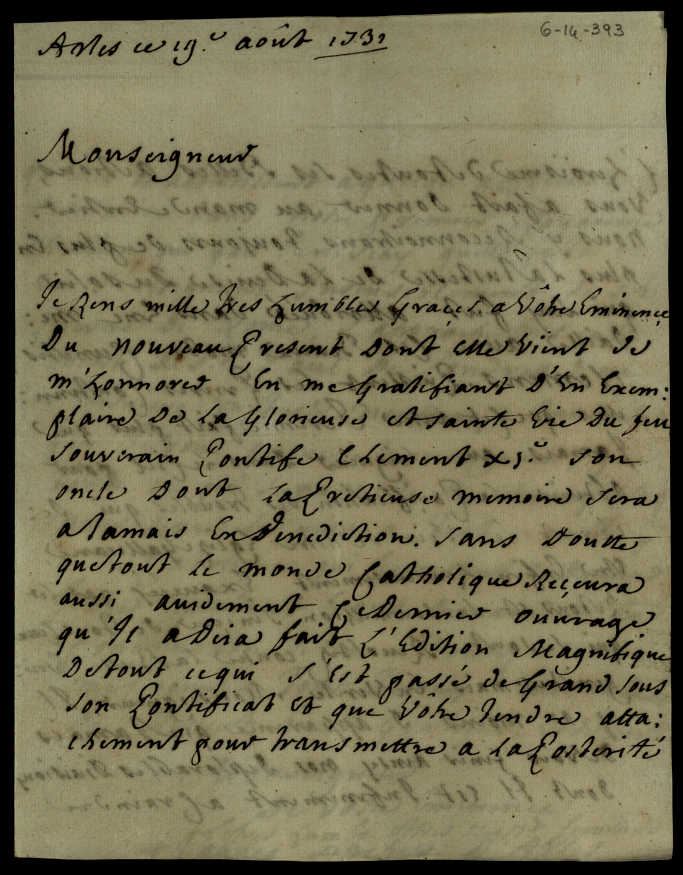 6-14-393
Arles ce 19.e août 1731
Monseigneur
Je Rens mille tres humbles Graces a Vôtre Eminence
Du nouveau Present Dont elle vient de
m'honnorer En me Gratifiant D'un Exem:
plaire De la Glorieuse et sainte Vie Du feu
souverain Pontife Clement XI.e son
oncle Dont la Pretieuse memoire sera
a Jamais En Benediction. sans Doutte
que tout le monde Catholique Reçevra
aussi avidement ce Dernier ouvrage
qu'Il a Deja fait L'Edition Magnifique
De tout ce qui s'Est passé de Grand sous
son Pontificat et que Vôtre tendre atta:
chement pour transmettre a la Posterité